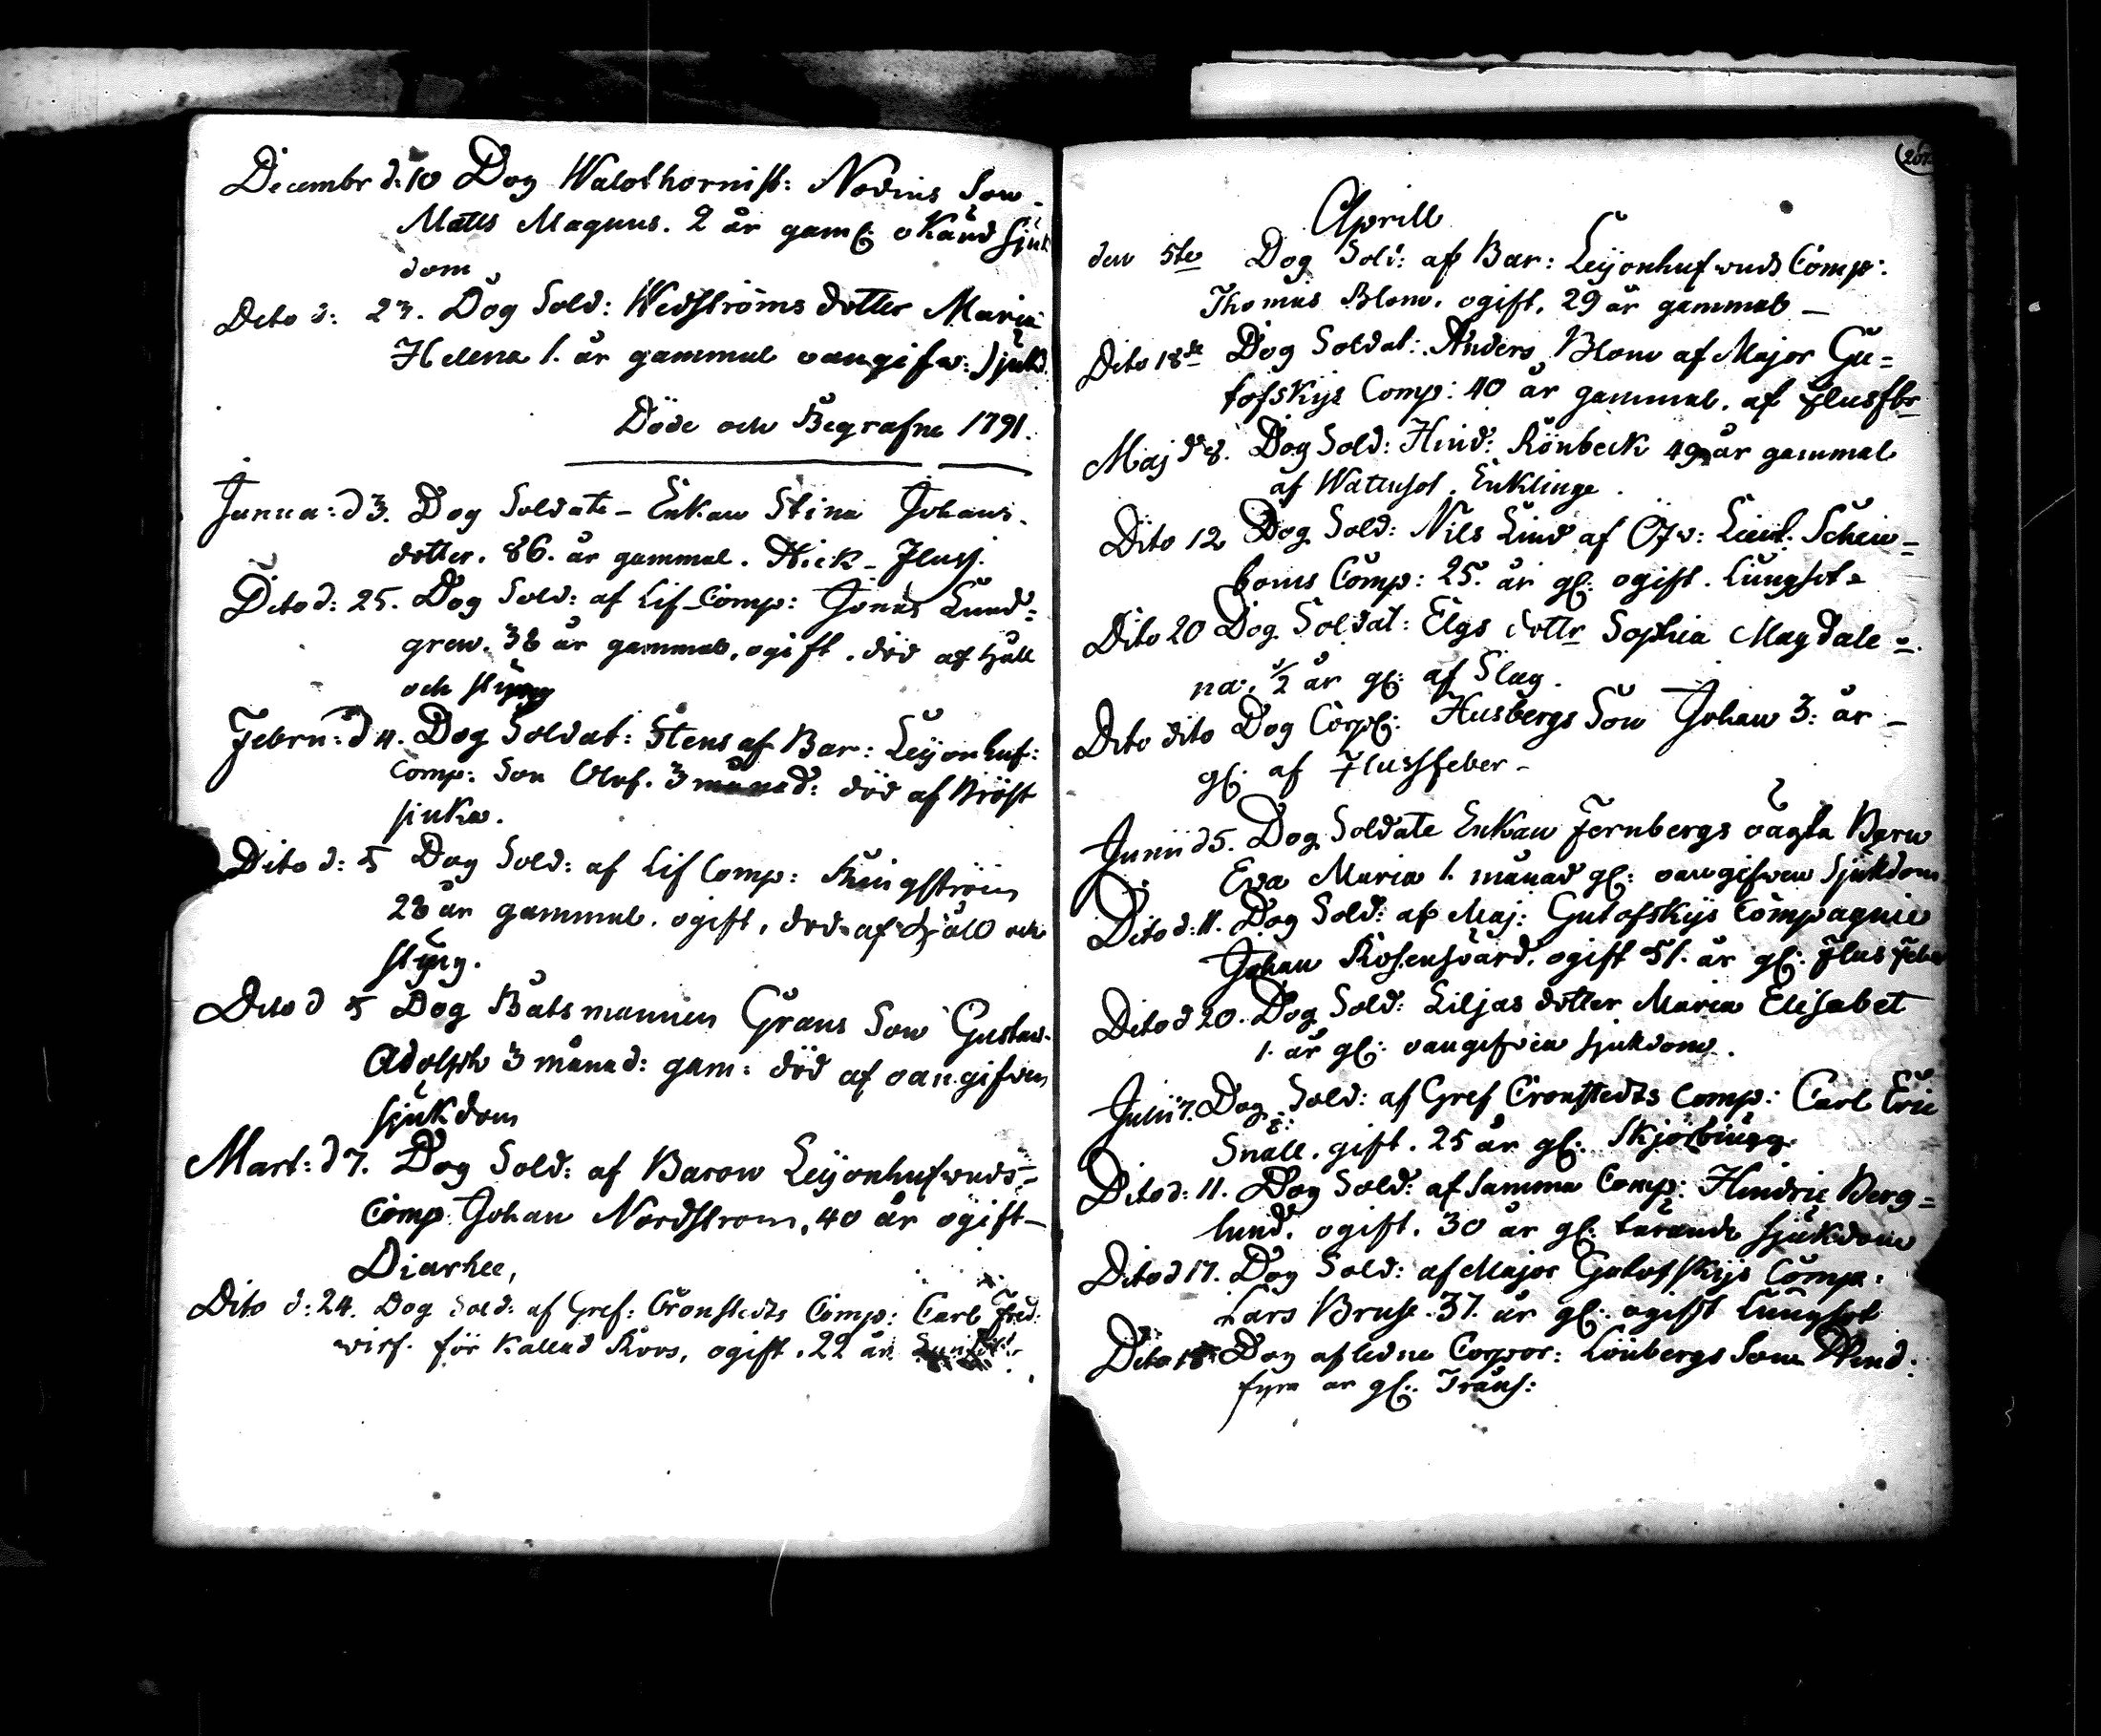 Decembr d: 10 Dog Waldthornist: Nodins Son
Matts Magnus. 2 år gaml: okänd Sjuk
dom
Dito d: 23. Dog Sold: Wedströms dotter Maria
Helena 1. år gammal oangifw: Sjukd.
Döde och Begrafne 1791.
Janua: d 3. Dog Soldate-Enkan Stina Johans-
dotter. 86. år gammal. Hick-Fluss.
Dito d: 25. Dog Sold: af Lif-Comp: Jonas Lund=
gren. 38 år gammal, ogift. död af håll
och styng
Febru: d 4. Dog Soldat: Stens af Bar: Leijonhuf:
Comp: Son Olof. 3 månad: död af Bröst
sjuka.
Dito d: 5 Dog Sold: af Lif Comp: Kungström
28 år gammal. ogift, död af håll och
styng.
Dito d 5 Dog Båtsmannen Grans Son Gustaw-
Adolph 3 månad: gam: död af oangifwen
sjukdom
Mart: d 7. Dog Sold: af Baron Leijonhufwuds-
Comp: Johan Nordstrom, 40 år ogift-
Diarhee,
Dito d: 24. Dog Sold: af Gref: Cronstedts Comp: Carl Fred:
för kallad Roos, ogift. 22 år.
Aprill
den 5te Dog Sold: af Bar: Leijonhufwuds Comp:
Thomas Blom, ogift, 29 år gammal -
Dito 18de Dog Soldat: Anders Blom af Major Gu=
tofskijs Comp: 40 år gammal. af Flusfbr
Maj d 8. Dog Sold: Hind: Rönbeck 49 år gammal
af Watusot. Enklinge.
Dito 12 Dog Sold: Nils Lind af Öfw: Lieut: Schein=
boms Comp: 25. år gl: ogift. Lungsot=
Dito 20 Dog Soldat: Elgs dottr Sophia Magdale=
na, 1/2 år gl: af Slag.
Dito dito Dog Corpl: Husbergs Son Johan 3: år -
gl: af Flussfeber -
Junii d 5. Dog Soldate Enkan Fernbergs oägta Barn
Eva Maria 1. månad gl: oangifwen Sjukdom
Dito d: 11. Dog Sold: af Maj: Gutofskijs Compagnie
Johan Rosensvärd, ogift 51. år gl: Flus feber
Dito d 20. Dog Sold: Liljas dotter Maria Elisabet
1. år gl: oangifwen sjukdom.
Julii 7. Dog Sold: af Gref Cronstedts Comp: Carl Eric
Snäll. gift. 25 år gl: Skjörbiugg.
Dito d: 11. Dog Sold: af samma Comp: Hindric Berg=
lund. ogift. 30 år gl: tärande sjukdom
Dito d 17. Dog Sold: af Major Gutofskijs Comp:
Lars Bruse. 37. år gl: ogift Lungsot
Dito 18 Dog afledne Corpor: Lönbergs Son
fyra år gl: